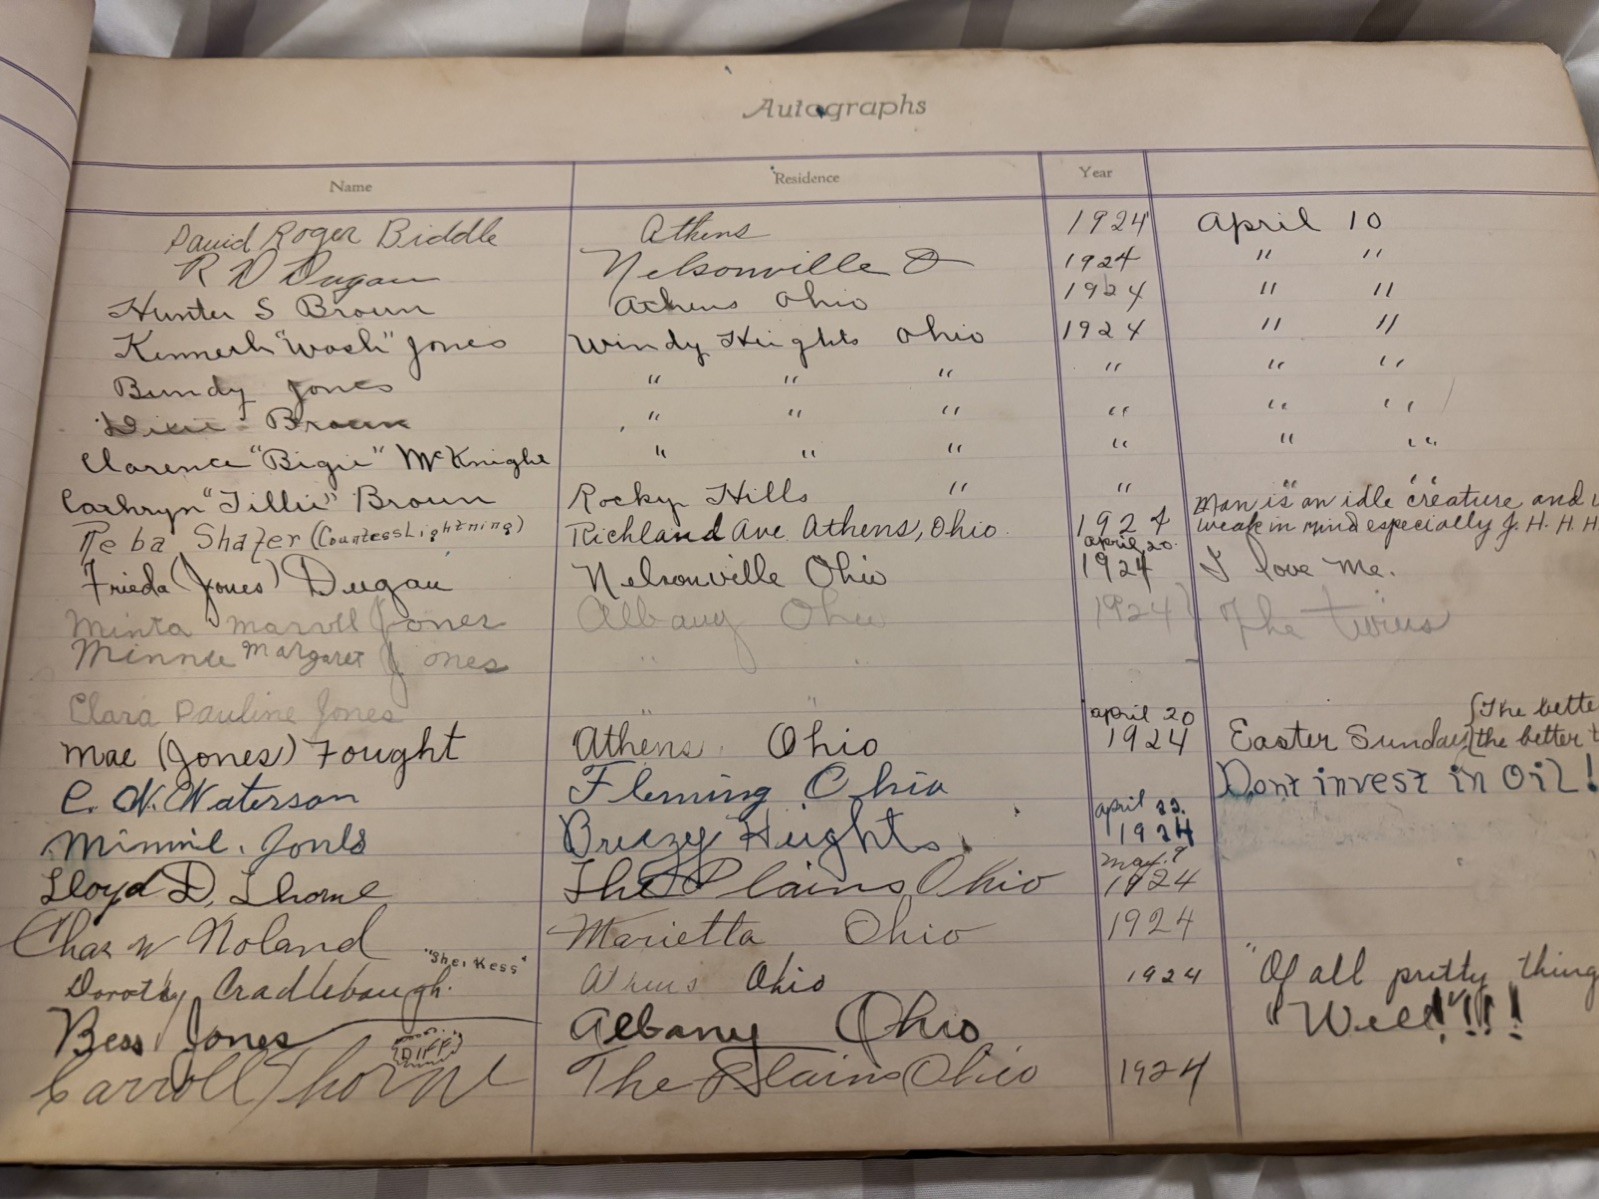 Autographs
Name Residence Year
David Roger Biddle Athens 1924 April 10
R D Dugan Nelsonville O 1924 " "
Hunter S Brown Athens Ohio 1924 " "
Kenneth "Wash" Jones Windy Heights Ohio 1924 " "
Bundy Jones " " " " " "
Dixie Brown " " " " " "
Clarence "Bigie" McKnight " " " " " "
Cathryn "Tillie" Brown Rocky Hills " " " "
Reba Shafer (Countess Lightning) Richland Ave Athens, Ohio. 1924 Man is an idle creature and
weak in mind especially J. H. H. H
Frieda (Jones) Dugan Nelsonville Ohio april 20. 1924 I love me.
Minta Marvll Jones Albany Ohio 1924 } The twins
Minnie Margaret Jones " "
Clara Pauline Jones " "
Mae (Jones) Fought Athens. Ohio april 20 1924 Easter Sunday {The bette
the better t
C. W. Waterson Fleming Ohio Dont invest in Oil!
Minnie. Jones Breazy Heights. april 22. 1924
Lloyd D. Thorne The Plains Ohio may. 9 1924
Chas W Noland Marietta Ohio 1924
Dorothy Cradlebaugh. "Shei Kess" Athens Ohio 1924 "Of all pretty thing
Bess Jones Albany Ohio "Well"!!!!
Carroll Thorne "DIFF" The Plains Ohio 1924